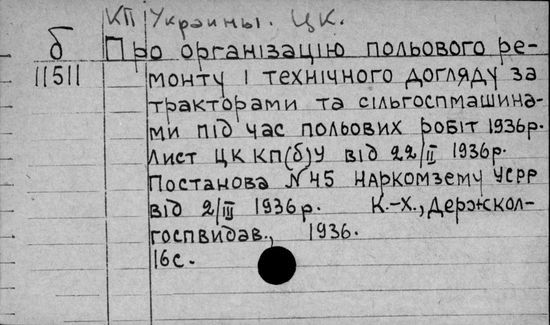 КП Украины. ЦК.
б
11511
Про організацію польового ре-
монту і технічного догляду за
тракторами та сільгоспмашина-
ми під час польових робіт 1936р.
Лист ЦК КП(б)У від 22/II 1936р.
Постанова №45 Наркомзему УСРР
від 2/III 1936р. К.-Х., Держкол-
госпвидав., 1936.
16с.